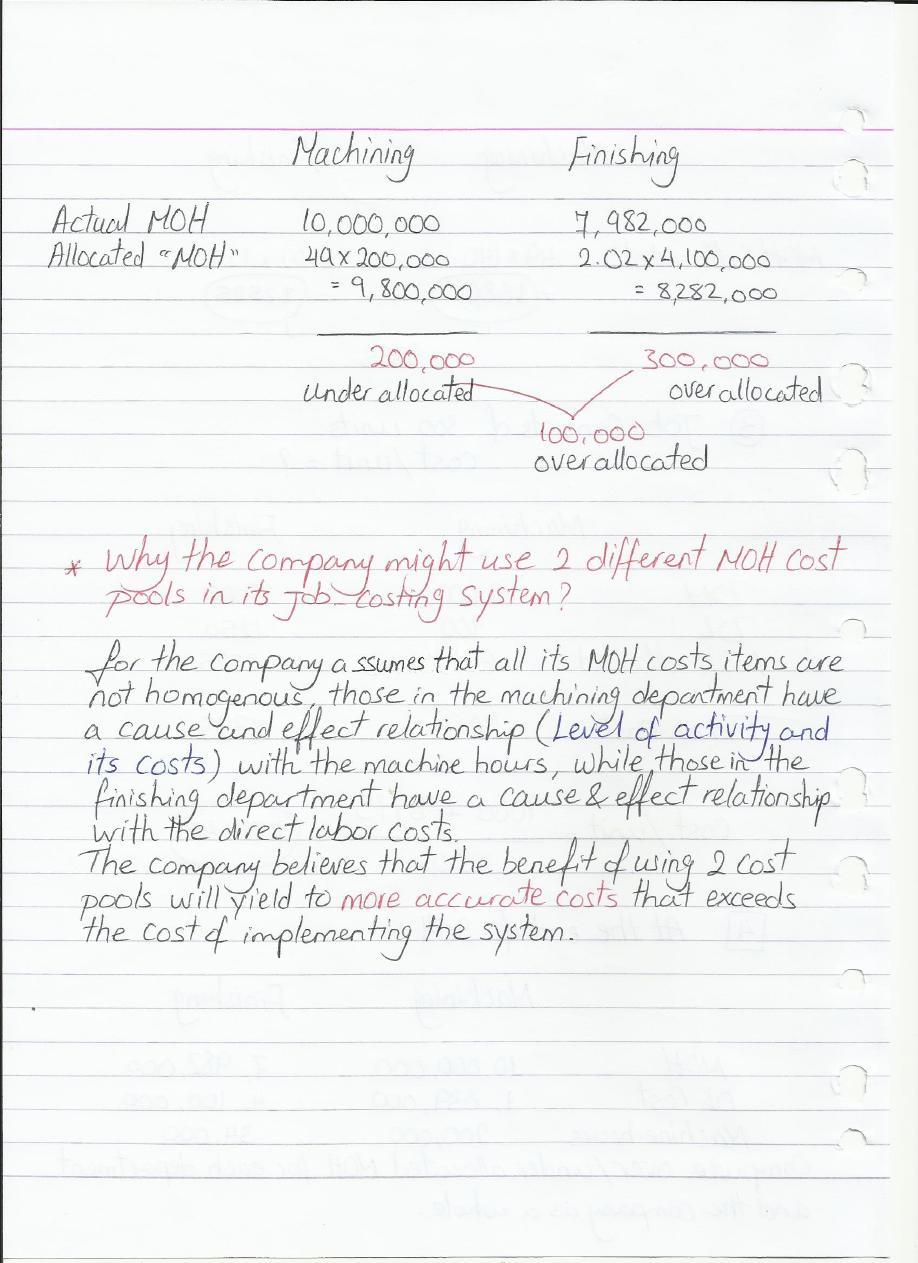 Machining Finishing
Actual MOH 10,000,000 7,982,000
Allocated "MOH" 49 x 200,000 2.02 x 4,100,000
= 9,800,000 = 8,282,000
200,000 300,000
under allocated over allocated
100,000
over allocated
* Why the company might use 2 different MOH cost
pools in its job-costing system?
for the company assumes that all its MOH costs items are
not homogenous, those in the machining department have
a cause and effect relationship (Level of activity and
its costs) with the machine hours, while those in the
finishing department have a cause & effect relationship
with the direct labor costs.
The company believes that the benefit of using 2 cost
pools will yield to more accurate costs that exceeds
the cost of implementing the system.